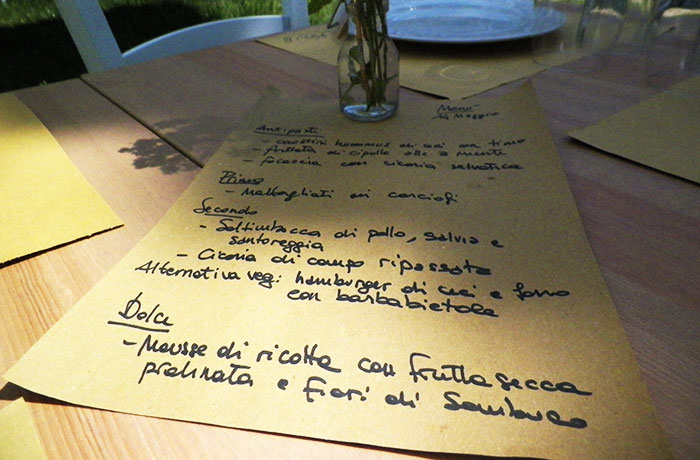 Menù
14 Maggio
Antipasti
- crostini hummus di ceci con timo
- frittata di cipolle alle 3 mente
- focaccia con cicoria selvatica
Primo
- Maltagliati ai carciofi
Secondo
- Saltimbocca di pollo, salvia e
santoreggia
- Cicoria di campo ripassata
Alternativa veg: hamburger di ceci e farro
con barbabietola
Dolce
- Mousse di ricotta con frutta secca
pralinata e fiori di Sambuco